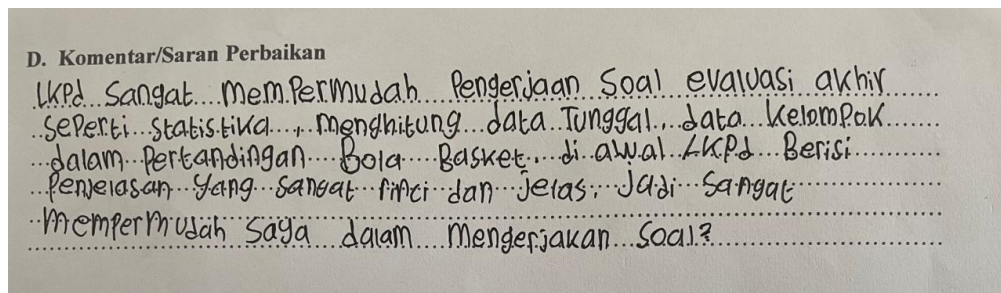 D. Komentar/Saran Perbaikan
LKPd Sangat memPermudah Pengerjaan Soal evaluasi akhir
sePerti statistika, menghitung data Tunggal, data KelomPok
dalam Pertandingan Bola Basket, di awal LKPd Berisi
Penjelasan Yang sangat rinci dan jelas, Jadi Sangat
memPermudah Saya dalam mengerjakan Soal2